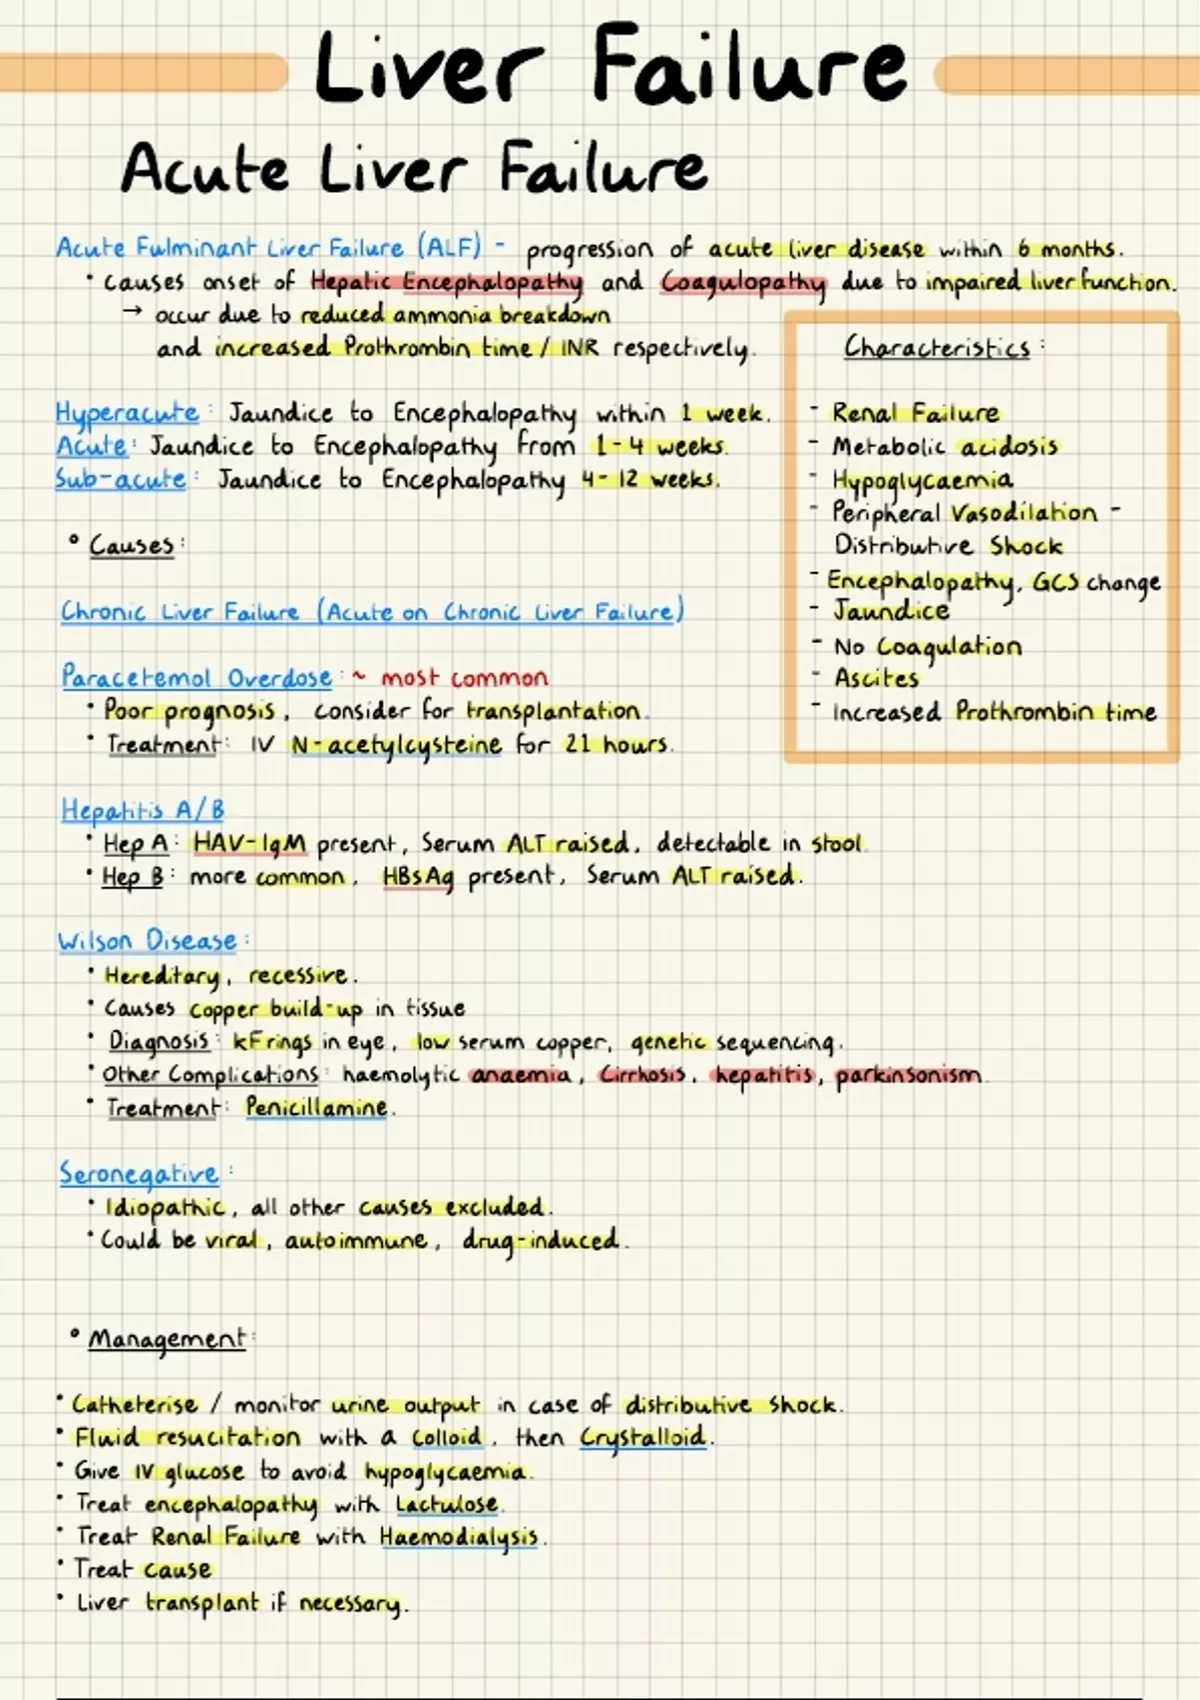 Liver Failure
Acute Liver Failure
Acute Fulminant Liver Failure (ALF) - progression of acute liver disease within 6 months.
• Causes onset of Hepatic Encephalopathy and Coagulopathy due to impaired liver function.
→ occur due to reduced ammonia breakdown
and increased Prothrombin time / INR respectively.
Hyperacute: Jaundice to Encephalopathy within 1 week.
Acute: Jaundice to Encephalopathy from 1-4 weeks.
Sub-acute: Jaundice to Encephalopathy 4-12 weeks.
Characteristics:
- Renal Failure
- Metabolic acidosis
- Hypoglycaemia
- Peripheral Vasodilation -
Distributive Shock
- Encephalopathy, GCS change
- Jaundice
- No Coagulation
- Ascites
- Increased Prothrombin time
• Causes:
Chronic Liver Failure (Acute on Chronic Liver Failure)
Paracetemol Overdose: ~ most common
• Poor prognosis, consider for transplantation.
• Treatment: IV N-acetylcysteine for 21 hours.
Hepatitis A/B
• Hep A: HAV-IgM present, Serum ALT raised, detectable in stool.
• Hep B: more common, HBsAg present, Serum ALT raised.
Wilson Disease:
• Hereditary, recessive.
• Causes copper build-up in tissue
• Diagnosis: KF rings in eye, low serum copper, genetic sequencing.
• Other Complications: haemolytic anaemia, Cirrhosis, hepatitis, parkinsonism.
• Treatment: Penicillamine.
Seronegative:
• Idiopathic, all other causes excluded.
• Could be viral, autoimmune, drug-induced.
• Management:
• Catheterise / monitor urine output in case of distributive shock.
• Fluid resucitation with a Colloid, then Crystalloid.
• Give IV glucose to avoid hypoglycaemia.
• Treat encephalopathy with Lactulose.
• Treat Renal Failure with Haemodialysis.
• Treat cause
• Liver transplant if necessary.